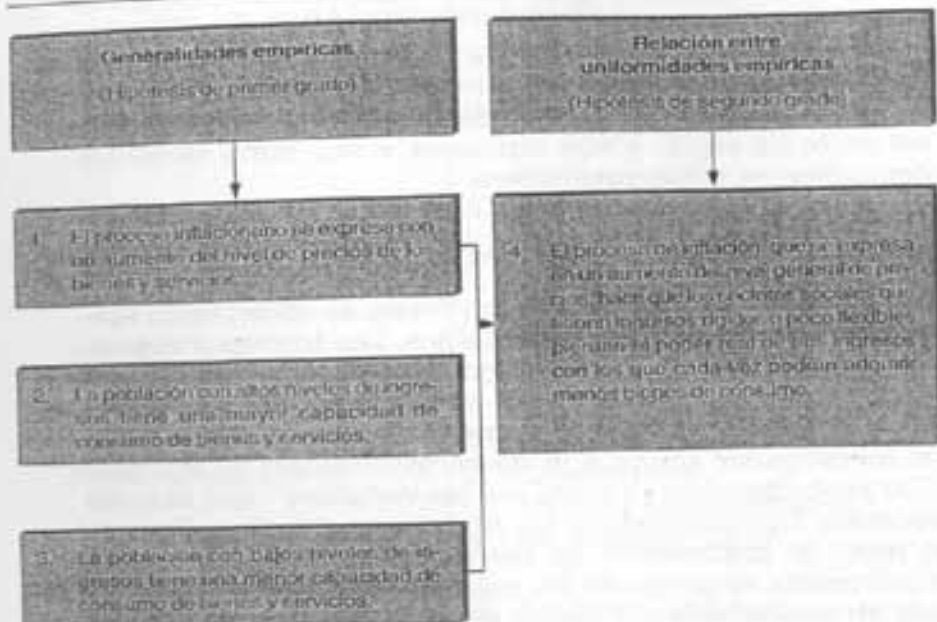 Generalidades empíricas
(Hipótesis de primer grado)
Relación entre
uniformidades empíricas
(Hipótesis de segundo grado)
1. El proceso inflacionario se expresa con
un aumento del nivel de precios de los
bienes y servicios.
2. La población con altos niveles de ingre-
sos tiene una mayor capacidad de
consumo de bienes y servicios.
3. La población con bajos niveles de in-
gresos tiene una menor capacidad de
consumo de bienes y servicios.
4. El proceso de inflación, que se expresa
en un aumento del nivel general de pre-
cios, hace que los sectores sociales que
tienen ingresos rígidos o poco flexibles
pierdan el poder real de sus ingresos
con los que cada vez podrán adquirir
menos bienes de consumo.